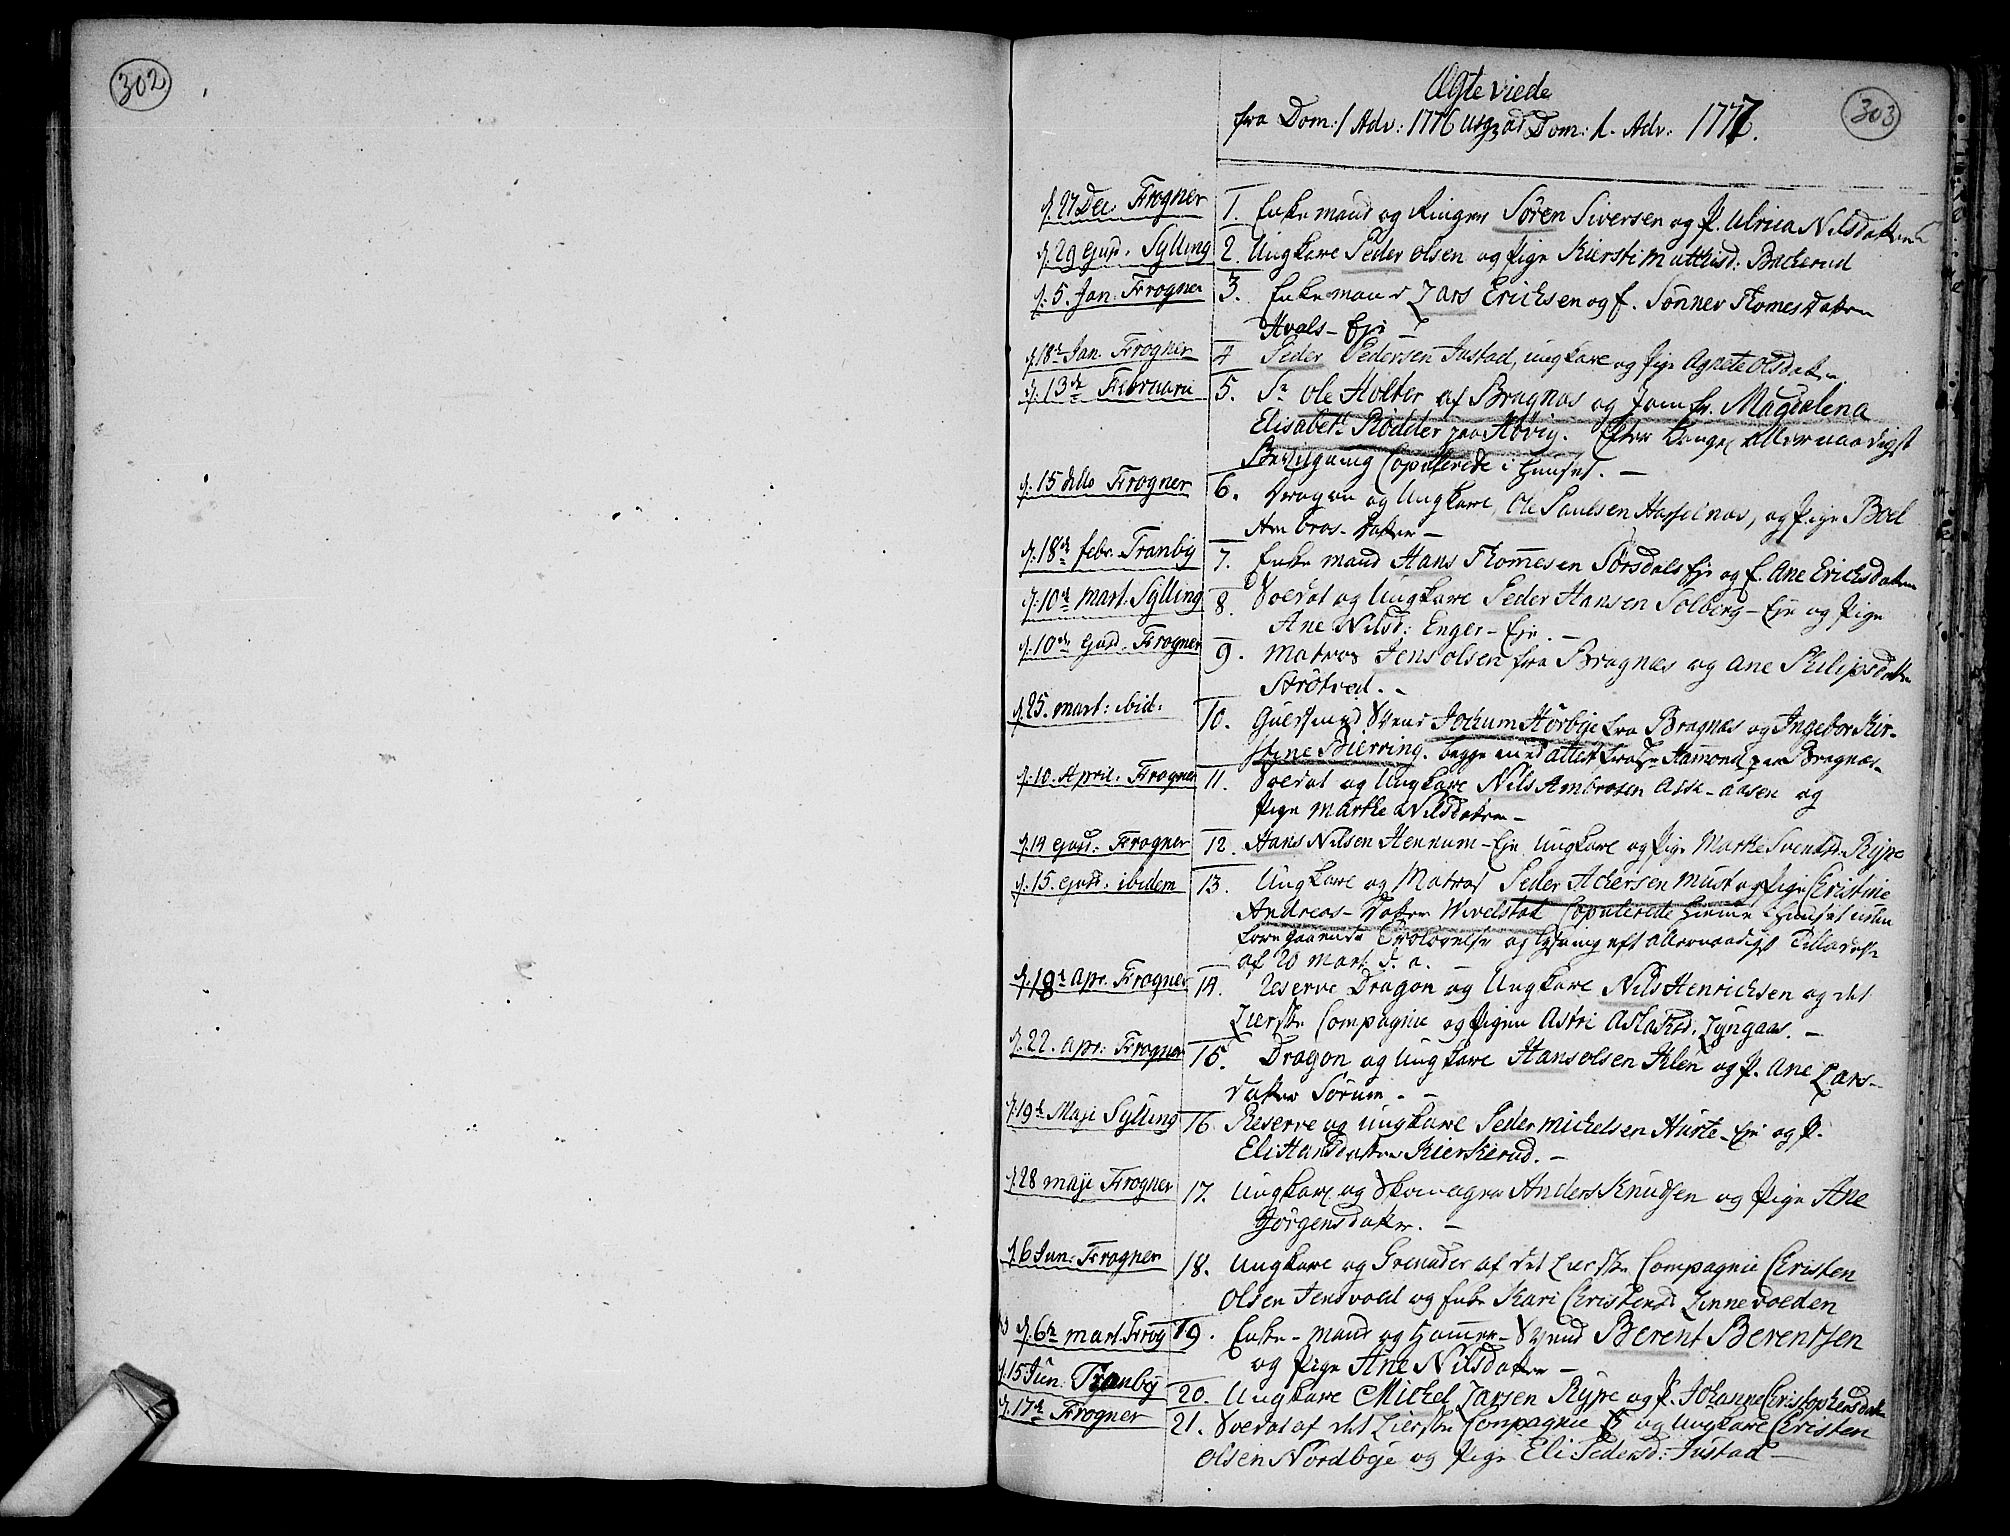 302
303
Ægteviede
fra Dom: 1 Adv: 1776 til Dom: 1. Adv: 1777.
d. 27 Dec. Frogner 1. Enkemand og Ringer Søren Siversen og P. Ulrica Nilsdatter
d. 29 ejusd. Sylling 2. Ungkarl Peder Olsen og Pige Kiersti Matthisd: Backerud
d. 5. Jan. Frogner 3. Enkemand Lars Ericksen og E. Sønnev Thomesdatter
Hvals-Eje
d. 18de Jan. Frogner 4 Peder Pedersen Justad, ungkarl og Pige Agnete Olsdatter
d. 13de Februarii 5. Sr. Ole Holter af Bragnæs og Jomfr. Magdalena
Elisabeth Rødder paa Høvig. Efter Konge allernaadigst
Bevilgning Copulerede i Huuset. -
d. 15 dito Frogner 6. Dragon og Ungkarl, Ole Paulsen Hasselnæs, og Pige Boel
Ambros-Datter -
d. 18de febr. Tranby 7. Enkemand Hans Thomesen Sørsdals Eje og E. Ane Ericksdatter
d. 10de mart. Sylling 8. Soldat og Ungkarl Peder Hansen Solberg-Eje og Pige
Ane Nilsd: Enger-Eje. -
d. 10de ejusd. Frogner 9. Matros Jens Olsen fra Bragnæs og Ane Philipsdatter
Strøtved. -
d. 25. mart: ibid. 10. Svend Jochum Hørbye fra Bragnæs og Ingebor Kir-
stine Bierring. begge med attest fra Hr Hammond paa Bragnæs.
d. 10. April. Frogner 11. Soldat og Ungkarl Nils Ambrosen Asse-aasen og
Pige Marthe Nilsdatter -
d. 14 ejusd: Frogner 12. Hans Nilsen Hennum-Eje Ungkarl og Pige Marthe Svendsd: Rype
d. 15. ejusd. ibidem 13. Ungkarl og Matros Peder Achersen Must og Pige Christine
Andreas-Datter Wivelstad Copulerede hiemme i Huuset uden
foregaaende Trolovelse og lysning eft allernaadigst Tilladelse
af 20 mart. d. a. -
d. 18de Apr. Frogner 14. Reserve Dragon og Ungkarl Nils Henrichsen og det
Lierske Compagnie og Pigen Astri Aslaksd. Lyngaas. -
d. 22. Apr: Frogner 15. Dragon og Ungkarl Hans Olsen Klen og P. Ane Lars-
datter Sørum. -
d. 19de Maji Sylling 16. Reserve og ungkarl Peder Michelsen Hurte-Eje og P.
Eli Hansdatter Kierkerud. -
d. 28 maji Frogner 17. Ungkarl og Skomager Anders Knudsen og Pige Ane
Jørgensdatter. -
d. 6 Jun: Frogner 18. Ungkarl og Grenader af det Lierske Compagnie Christen
Olsen Jensvold og Enke Kari Christensd. Linnesvolden
d. 6te mart. Frog 19. Enke-mand og Hammer-Svend Berent Berentsen
og Pige Ane Nilsdatter -
d. 15 Jun. Tranby 20. Ungkarl Mickel Larsen Rype og P. Johanne Christophersdatter
d. 17de Frogner 21. Soldat af det Lierske Compagnie og Ungkarl Christen
Olsen Nordbye og Pige Eli Pedersd: Justad -